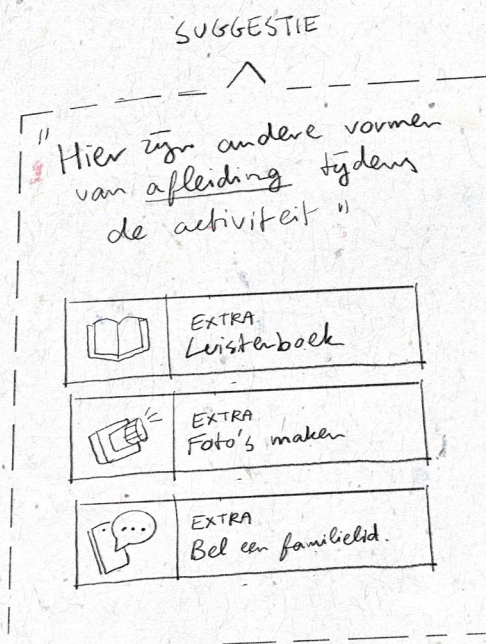 SUGGESTIE
"Hier zijn andere vormen
van afleiding tijdens
de activiteit"
EXTRA
Luisterboek
EXTRA
Foto's maken
EXTRA
Bel een familielid.